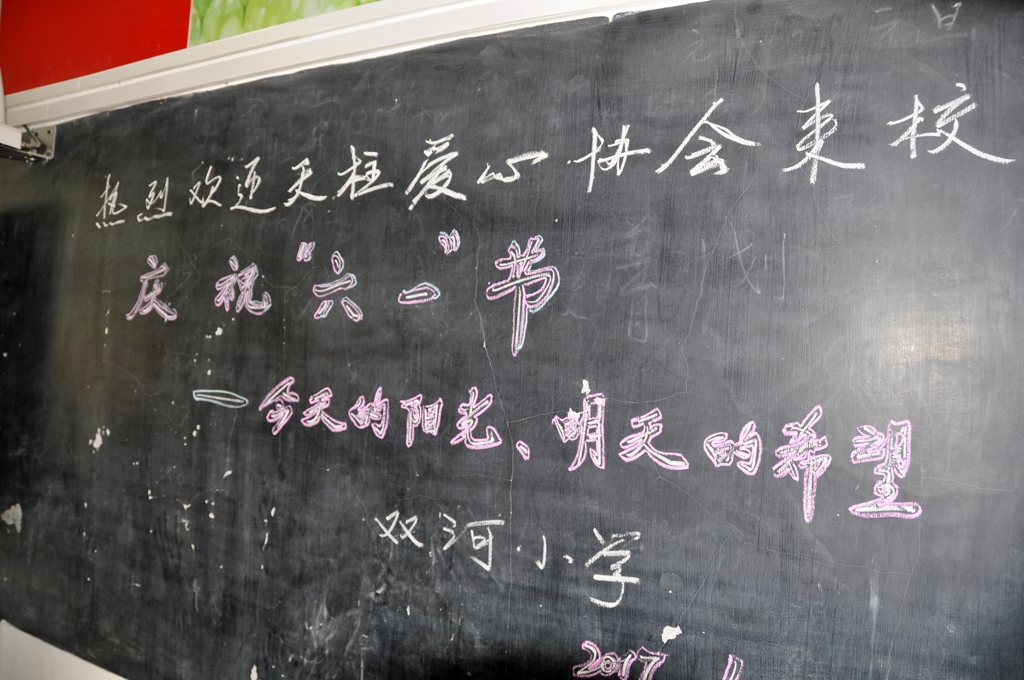 热烈欢迎天柱爱心协会来校
庆祝"六一"节
—今天的阳光、明天的希望
双河小学
2017